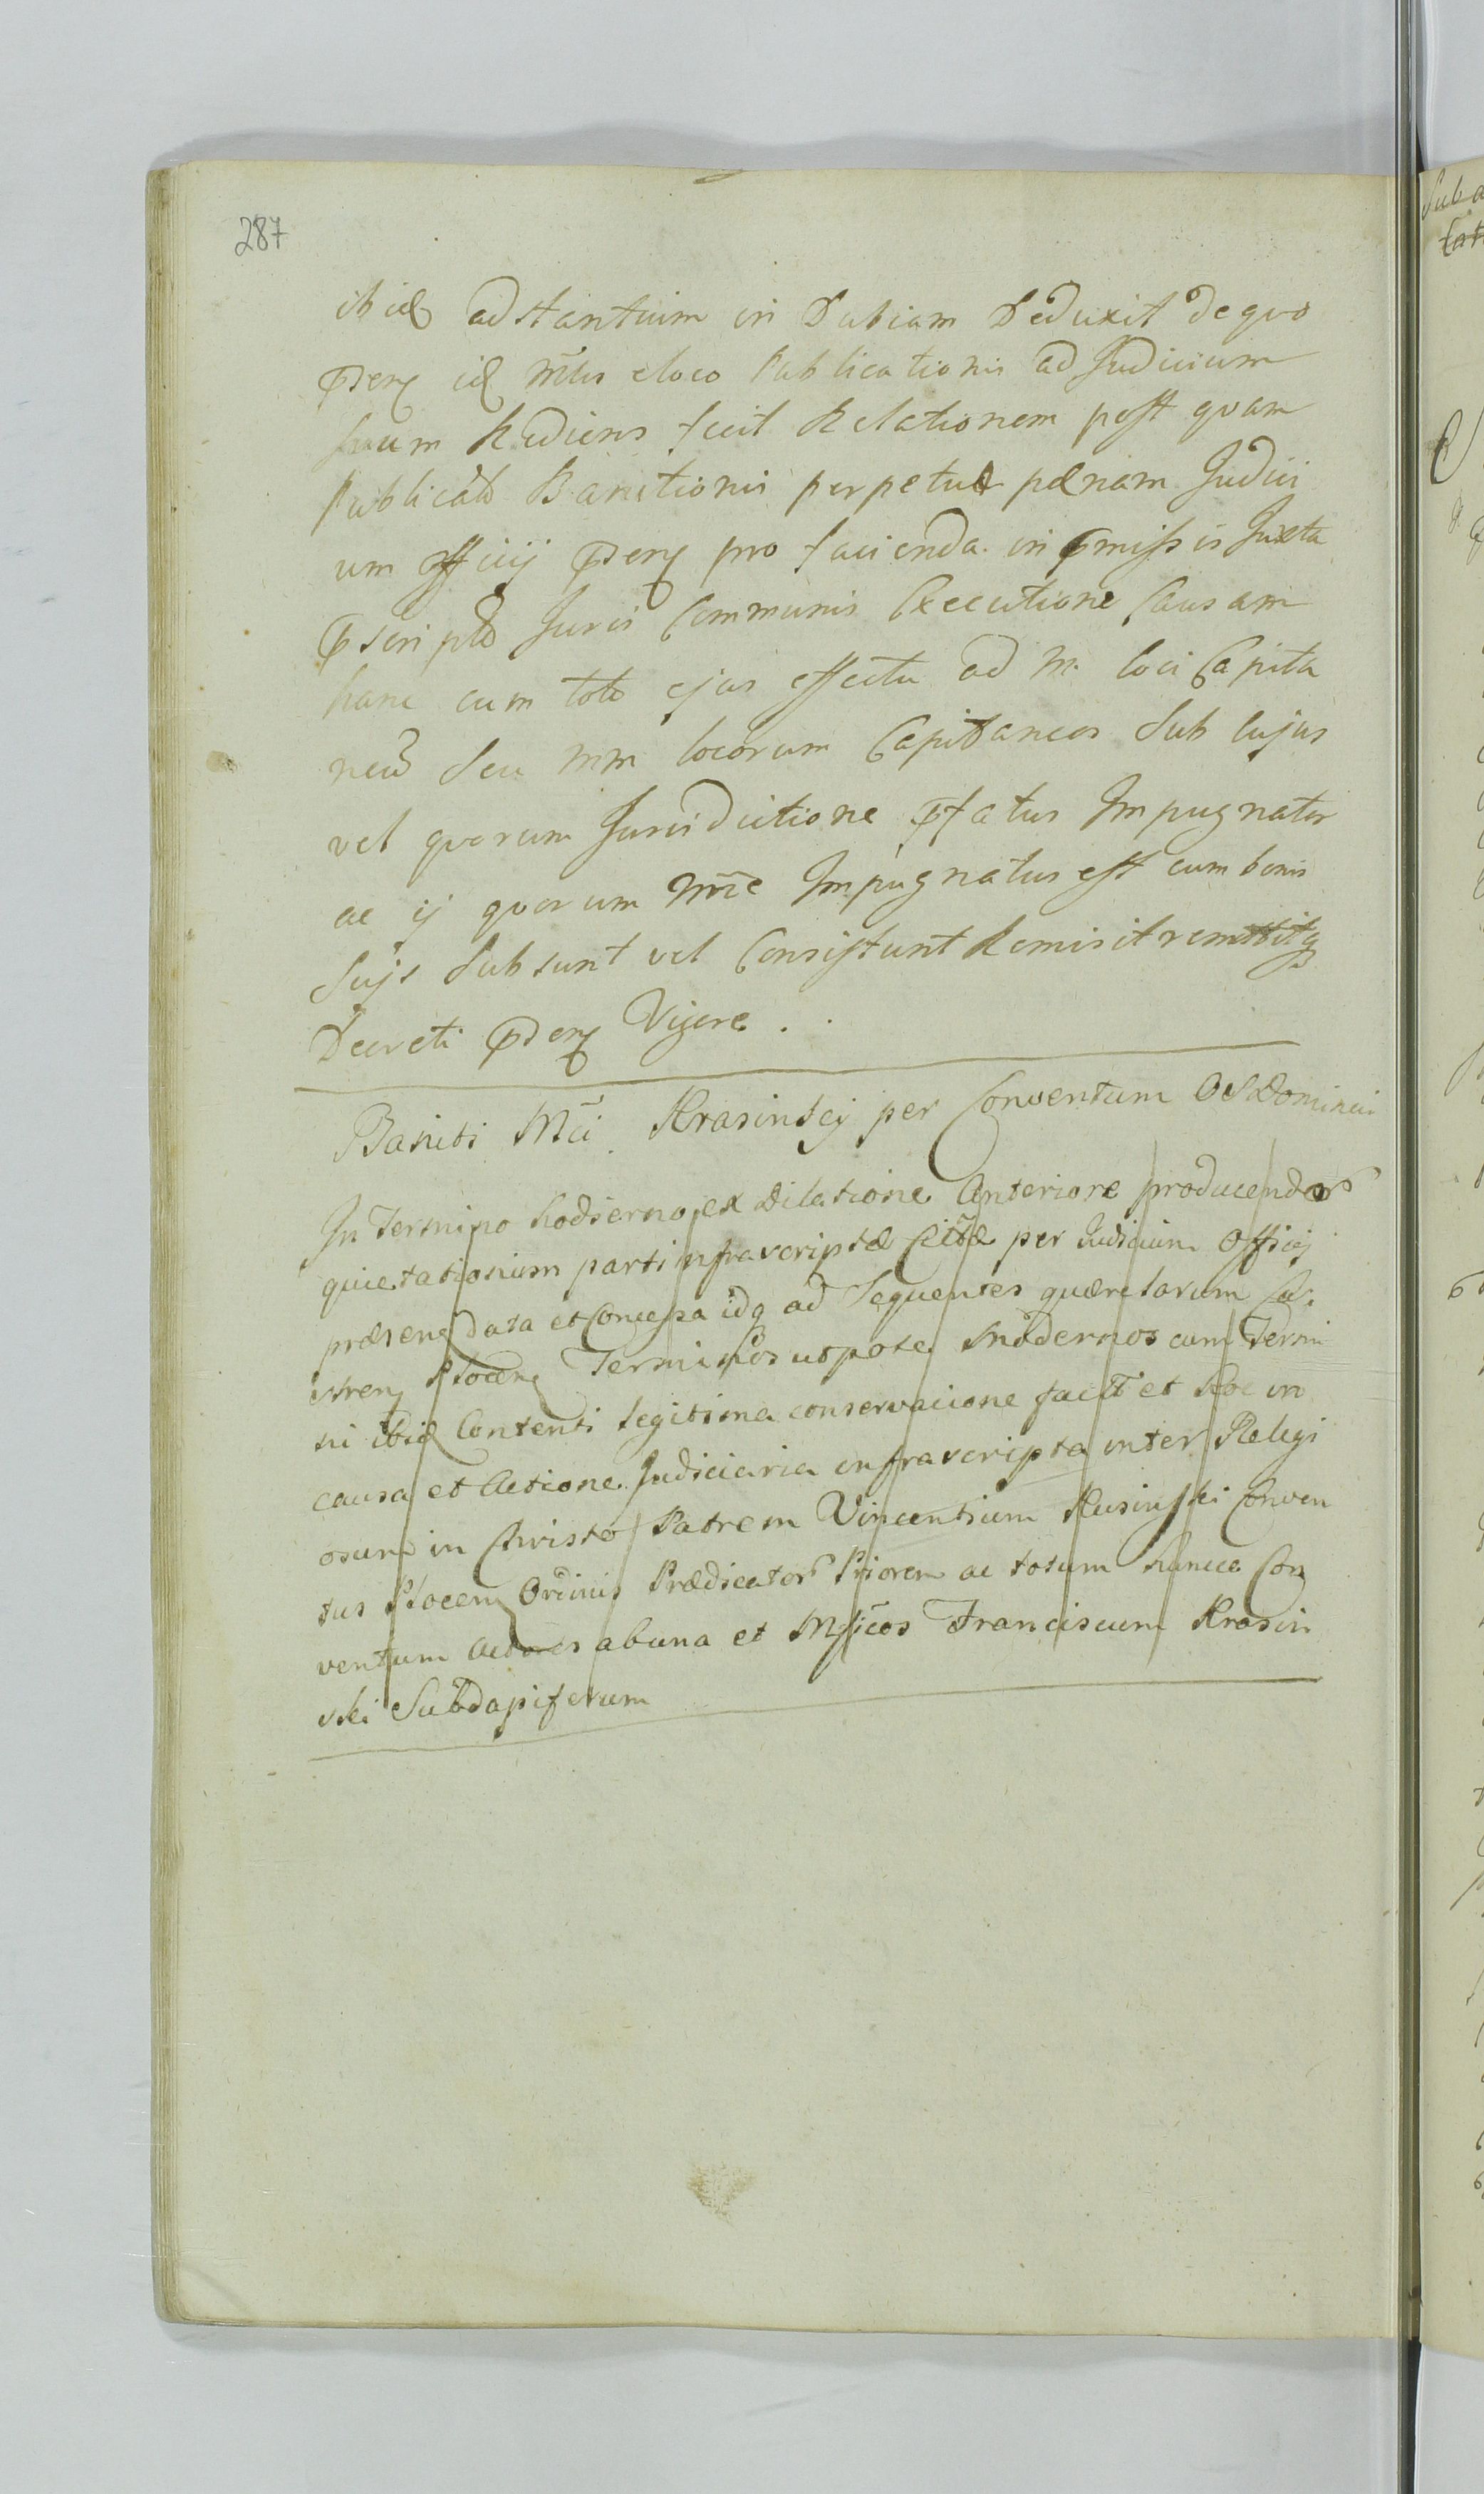 287
ibid adstantium in Dubiam Deduxit de quo
pden id Mtlis e loco Publicationis ad Judicium
suum Rediens fecit Relationem post quam
Publicato Banitionis perpetuæ pænam Judici
um officij pden pro facienda in pmissis Juxta
pscripto Juris Communis Executione Causam
hanc cum toto ejus effectu ad M. loci Capita
neu Seu MM locorum Capitaneos Sub Cujus
vel quorum Jurisdictione pfatus Impugnator
ac ij quorum nõie Impugnatus est cum bonis
Suis Subsunt vel Consistunt Remisit remittitq
Decreti pden Vigore.
Baniti Mci Krasinscy per Conventum OS Dominici
In Termino hodierno ex Dilatione Anteriore producendor
quietationum parti infrascriptæ Citæ per Judicium Officij
præsens data et Concessa idq ad Sequentes quærelarum Ca
stren Plocen Terminos utpote modernos cum Termi
ni ibid Contenti legitima conservacione facit et hoc in
causa et Actione Judiciaria infrascripta inter Religi
osum in Christo Patrem Vincentium Rusinski Conven
tus Plocen Ordinis Prædicator Priorem ac totum hunce Con
ventum Actores ab una et Mficos Franciscum Krasin
ski Subdapiferum